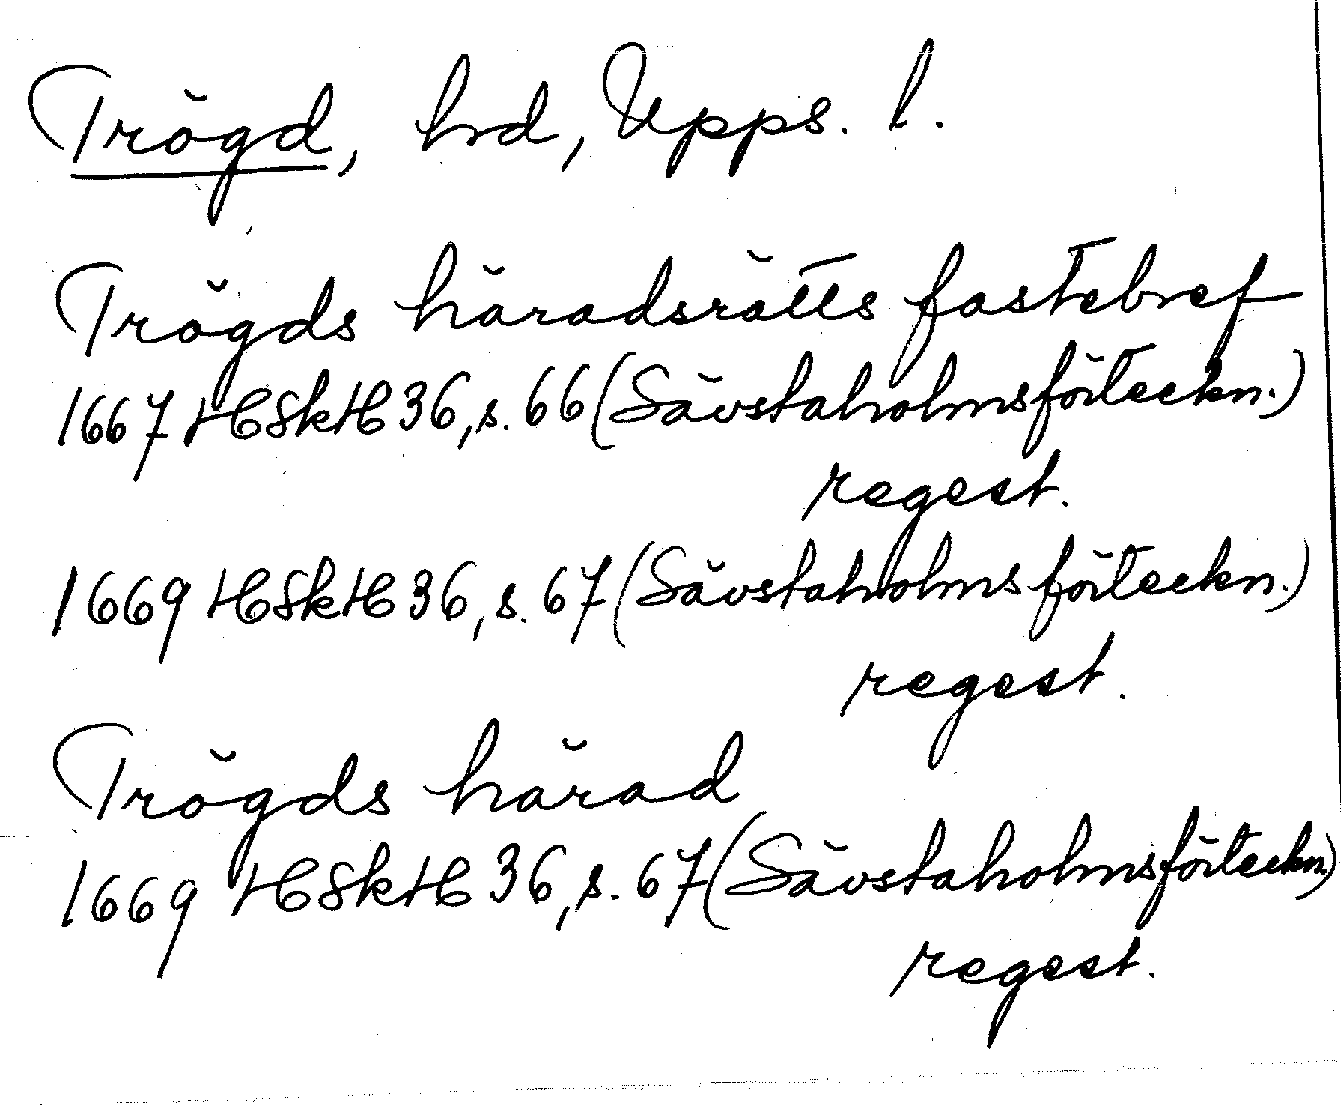 Trögd, hrd, Upps. l.
Trögds häradsrätts fastebref
1667 HSkH 36, s. 66 (Sävstaholmsförteckn.)
regest.
1669 HSkH 36, s. 67 (Sävstaholmsförteckn.)
regest.
Trögds härad
1669 HSkH 36, s. 67 (Sävstaholmsförteckn.)
regest.